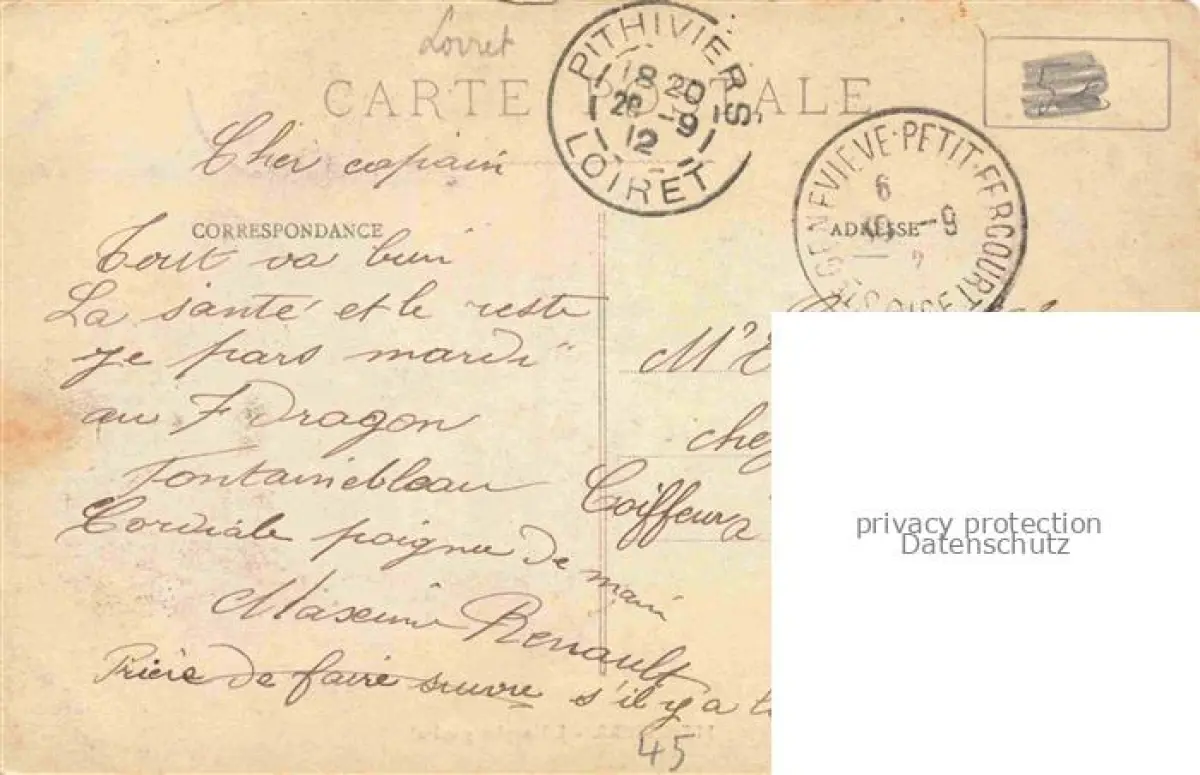 Loiret
CARTE POSTALE
PITHIVIERS
18 20
20 -9
12
LOIRET
GENEVIEVE-PETIT-FERCOURT
6
-9
OISE
Cher copain
CORRESPONDANCE
ADRESSE
Tout va bien
La santé et le reste
Je pars mardi
au 7 Dragon
Fontainebleau
Cordiale poignee de main
Maxime Renault
Prière de faire suivre s'il y a
Mr E
chez
Coiffeur à
45
privacy protection
Datenschutz